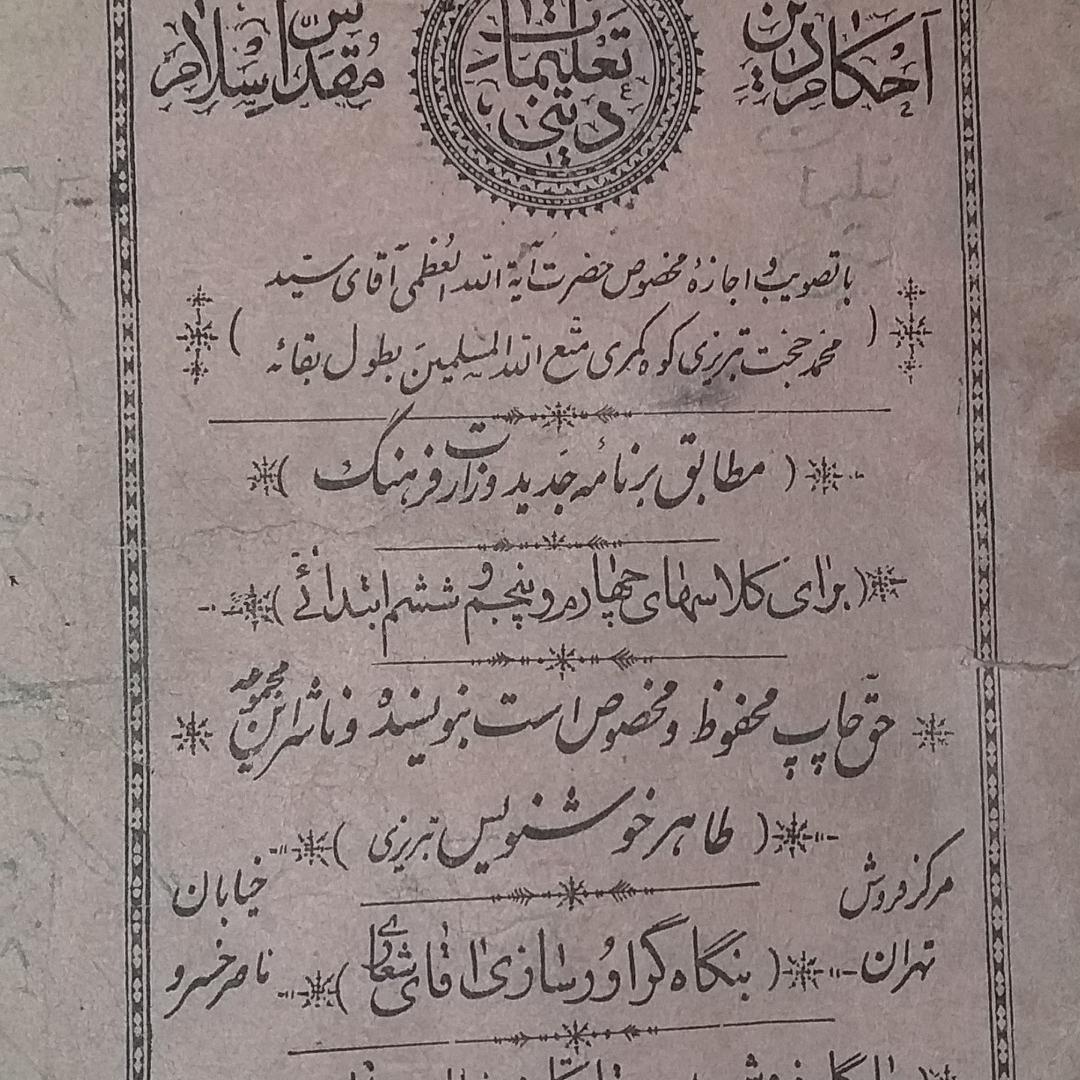 احکام دین
تعلیمات
دینی
مقدس اسلام
با تصویب و اجازهٔ مخصوص حضرت آیة الله العظمی آقای سید
(محمد حجت تبریزی کوه کمری متع الله المسلمین بطول بقائه)
(مطابق برنامه جدید وزارت فرهنگ)
(برای کلاسهای چهارم و پنجم و ششم ابتدائی)
حق چاپ محفوظ و مخصوص است بنویسنده و ناشر این مجموعه
(طاهر خوشنویس تبریزی)
مرکز فروش
خیابان
تهران
(بنگاه گراورسازی آقای شعاری)
ناصر خسرو